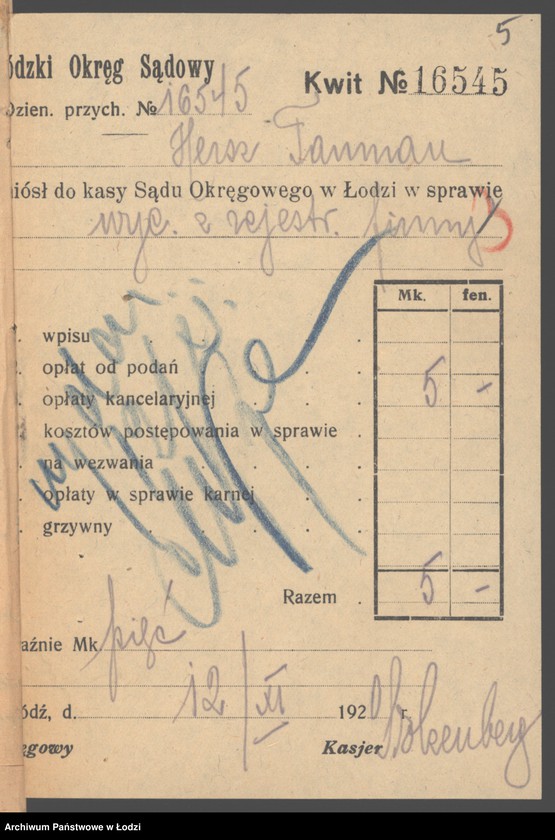 5
ódzki Okręg Sądowy
Kwit № 16545
Dzien. przych. № 16545
Hersz Tauman
niósł do kasy Sądu Okręgowego w Łodzi w sprawie
wyc. z rejestr. firmy
3
Mk. fen.
wpisu
opłat od podań
opłaty kancelaryjnej 5 -
kosztów postępowania w sprawie
na wezwania
opłaty w sprawie karnej
grzywny
Razem 5 -
aźnie Mk. pięć
ódź, d. 12/XI 1920 r.
ęgowy Kasjer
Archiwum Państwowe w Łodzi